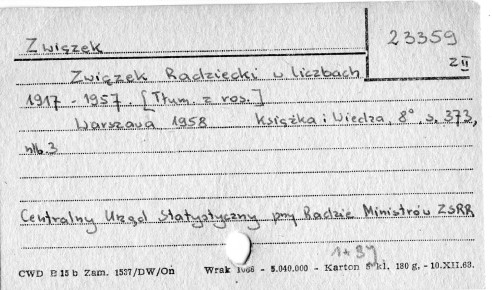 Związek 23359
Z II
Związek Radziecki w liczbach
1917 - 1957. [Tłum. z ros.]
Warszawa 1958 Książka i Wiedza, 8°, s. 373,
nlb. 3
Centralny Urząd Statystyczny przy Radzie Ministrów ZSRR
1+3
CWD E 15 b Zam. 1537/DW/Oń Wrak 1066 - 5.040.000 - Karton kl. 180 g. - 10.XII.63.